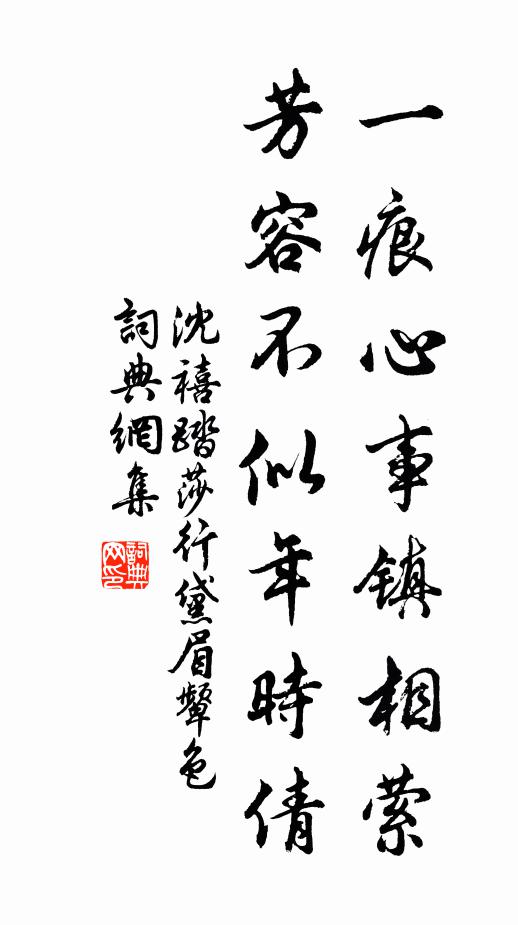 一痕心事鎮相縈
芳容不似年時倩
沈禧踏莎行黛眉顰色
詞典網集
詞典网印